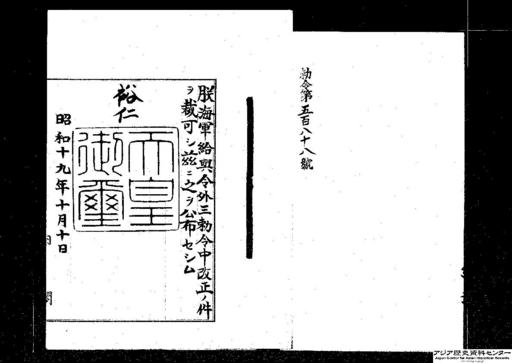 勅令第五百八十八號
朕海軍給與令外三勅令中改正ノ件
ヲ裁可シ茲ニ之ヲ公布セシム
裕仁
天皇
御璽
昭和十九年十月十日
内閣
アジア歴史資料センター
Japan Center for Asian Historical Records